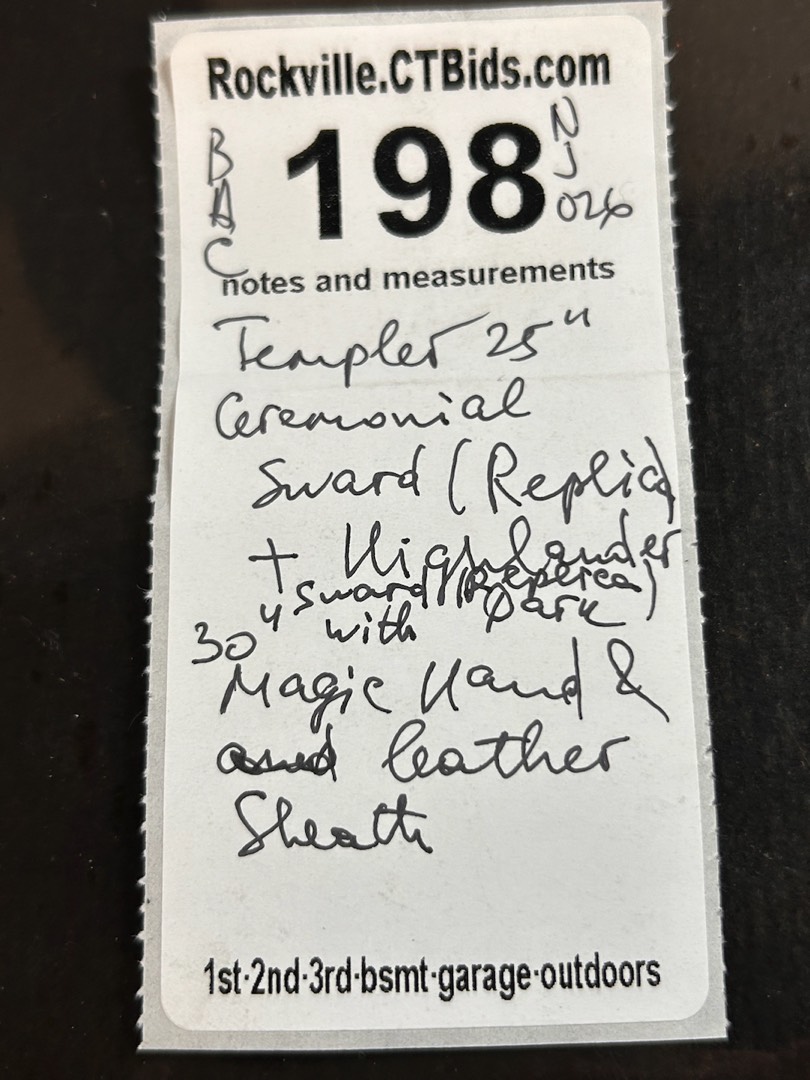 Rockville.CTBids.com
BAC 198 NJ 026
notes and measurements
Templer 25"
Ceremonial
Sward (Replica
+ Highlander
Sward (Replica)
30" with Dark
Magic Hand &
leather
Sheath
1st·2nd·3rd·bsmt·garage·outdoors